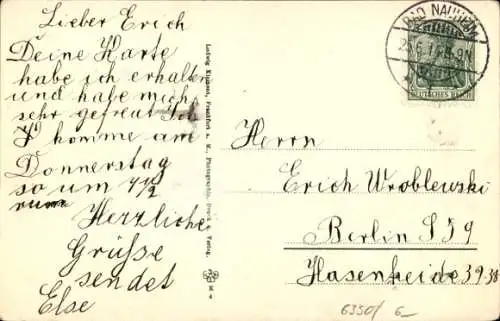 Lieber Erich
Deine Karte
habe ich erhalten
und habe mich
sehr gefreut Ich
komme am
Donnerstag
so um 7 1/2
Herzliche
Grüsse
sendet
Else
Ludwig Klement, Frankfurt a. M., Photographie, Verlag.
K 4
BAD NAUHEIM
DEUTSCHES REICH
Herrn
Erich Wroblewski
Berlin S 59
Hasenheide 39
6350/ 6